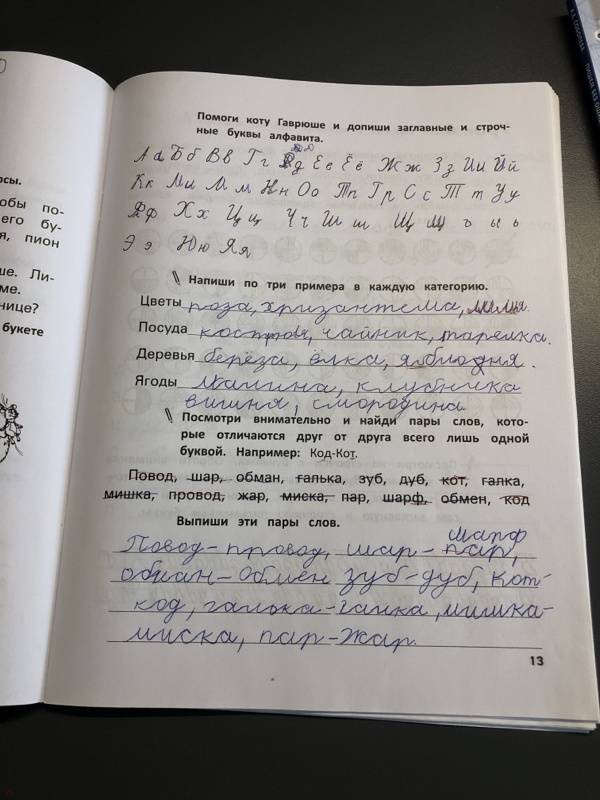 Помоги коту Гаврюше и допиши заглавные и строч-
ные буквы алфавита.
Аа Бб Вв Гг Дд Ее Ёё Жж Зз Ии Йй
Кк Лл Мм Нн Оо Пп Рр Сс Тт Уу
Фф Хх Цц Чч Шш Щщ ъ ы ь
Ээ Юю Яя
Напиши по три примера в каждую категорию.
Цветы роза, хризантема, лилия.
Посуда кострюля, чайник, тарелка.
Деревья берёза, ёлка, яблодня.
Ягоды Малина, клубника
вишня, смородина.
Посмотри внимательно и найди пары слов, кото-
рые отличаются друг от друга всего лишь одной
буквой. Например: Код-Кот.
Повод, шар, обман, галька, зуб, дуб, кот, галка,
мишка, провод, жар, миска, пар, шарф, обмен, код
Выпиши эти пары слов.
шарф
Повод-провод, шар-пар,
обман-Обмен зуб-дуб, Кот-
код, галька-галка, мишка-
миска, пар-Жар.
13
осы.
обы по-
его бу-
я, пион
ше. Ли-
ме.
нице?
букете